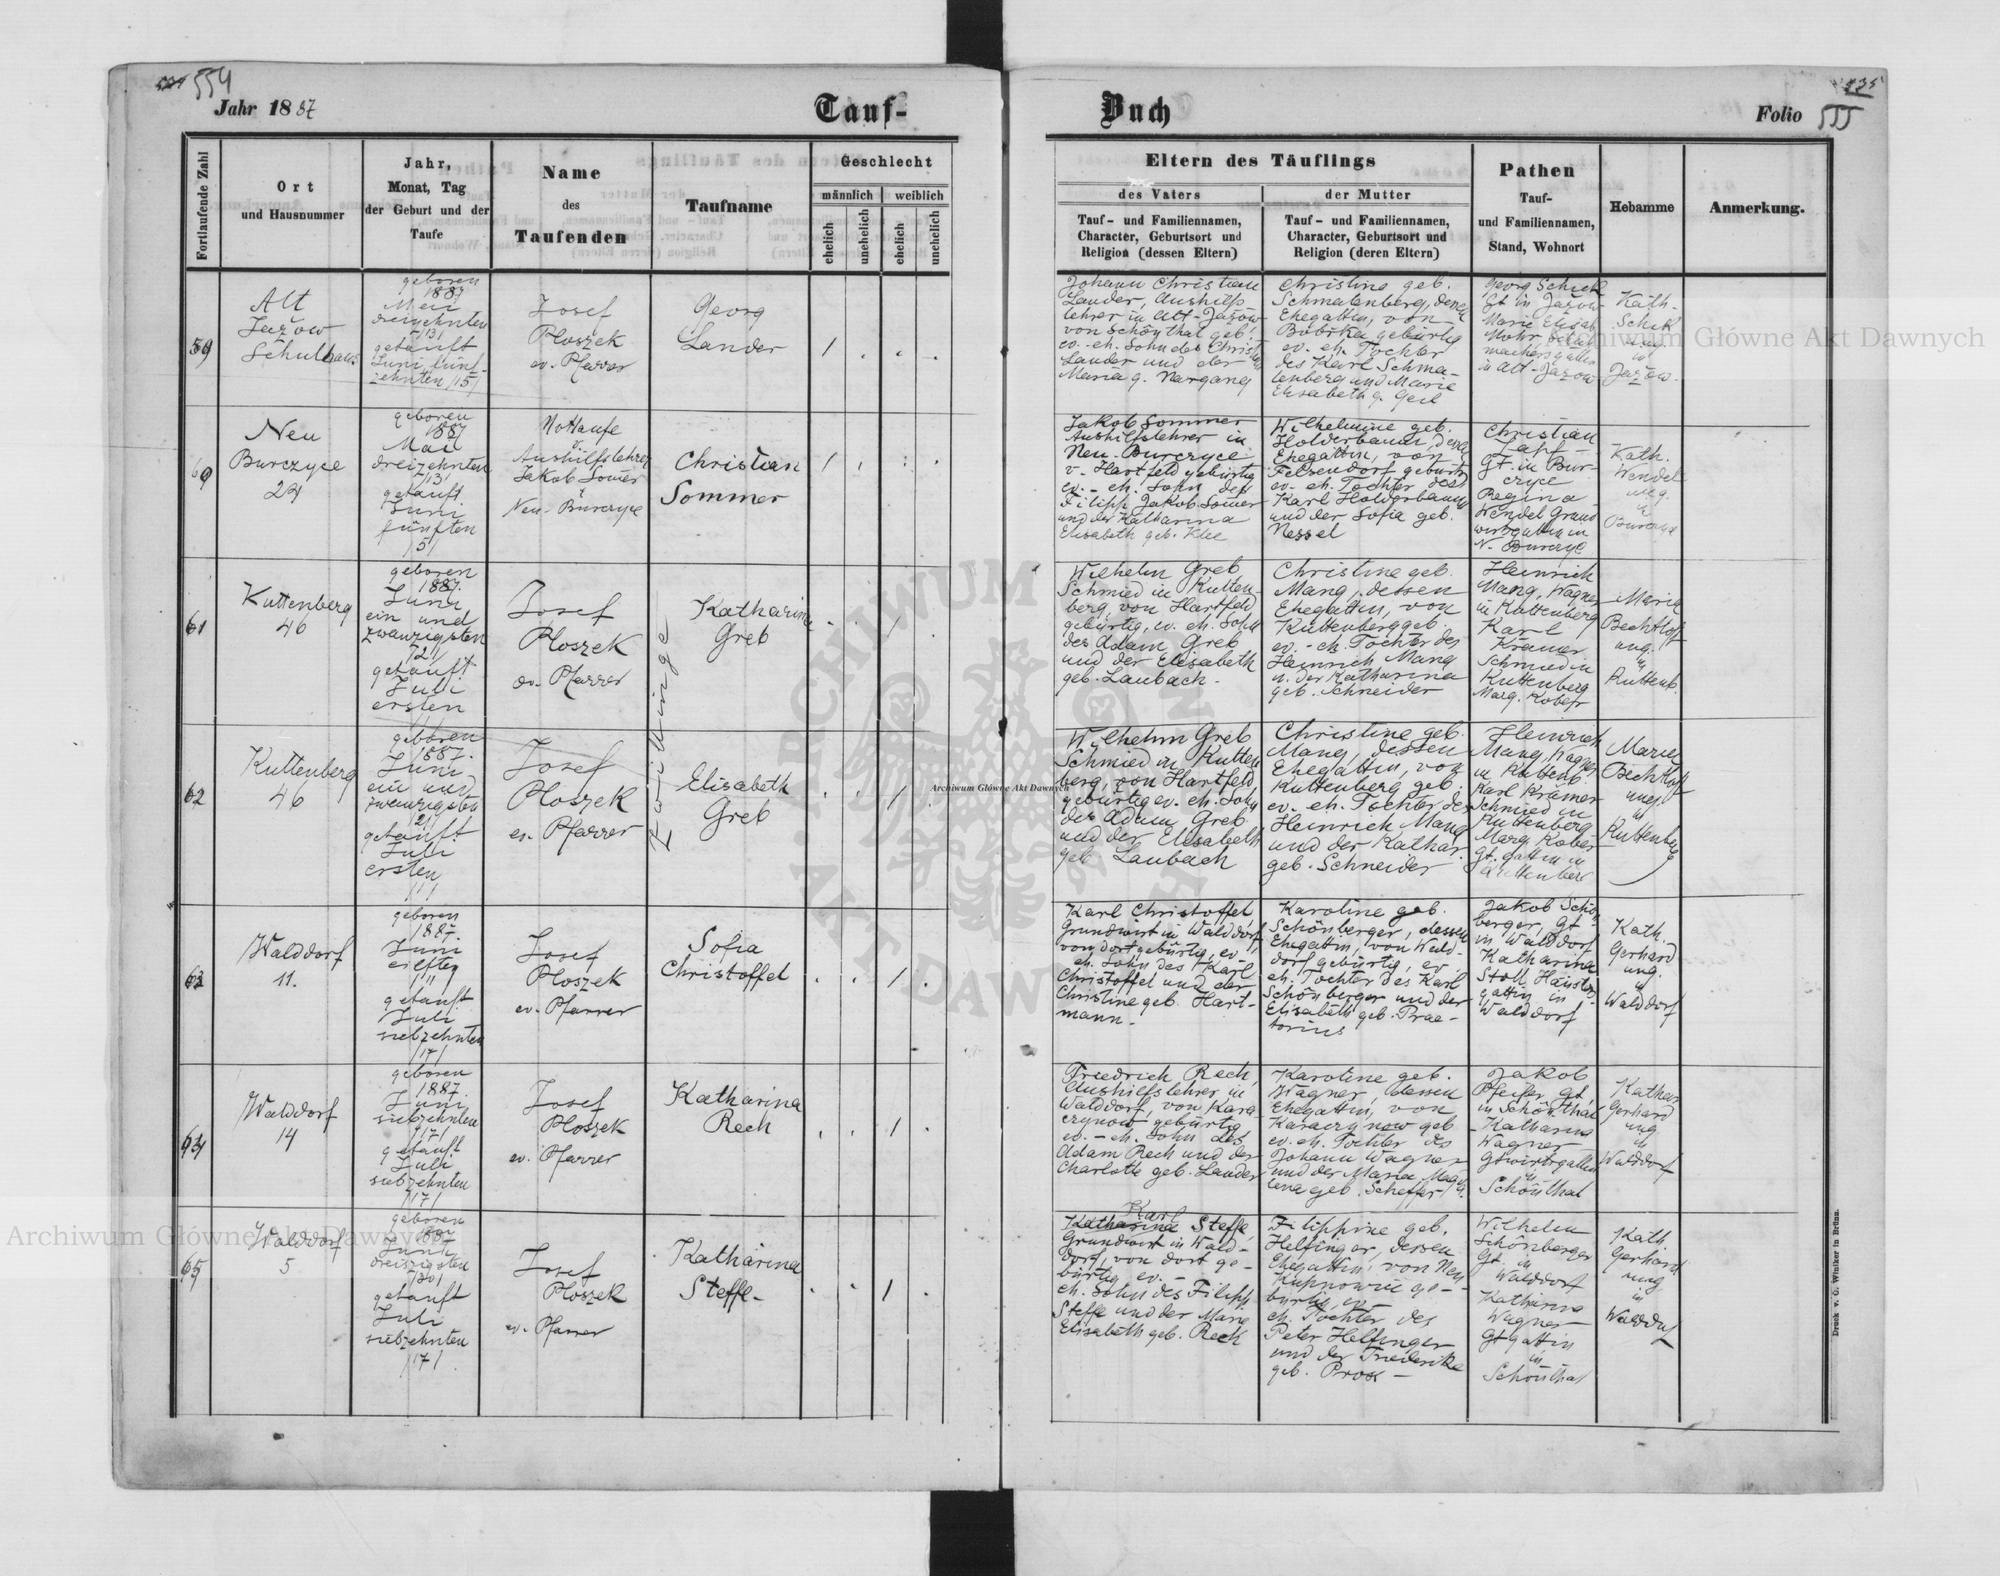 554
Jahr 1887
Tauf-
Fortlaufende Zahl
Ort
und Hausnummer
Jahr,
Monat, Tag
der Geburt und der
Taufe
Name
des
Taufenden
Taufname
Geschlecht
männlich
weiblich
ehelich
unehelich
ehelich
unehelich
59
Alt
Jażow
Schulhaus
geboren
1887
Mai
dreizehnten
/13/
getauft
Juni fünf-
zehnten /15/
Josef
Ploszek
ev. Pfarrer
Georg
Lander
Neu
Burczyce
24
geboren
1887
Mai
dreizehnten
/13/
getauft
Juni
fünften
/5/
Nottaufe
Aushilfslehrer
Jakob Somer
Neu-Burczyce
Christian
Sommer
61
Kuttenberg
46
geboren
1887.
Juni
ein und
zwanzigsten
/21/
getauft
Juli
ersten
/1/
Josef
Ploszek
ev. Pfarrer
Katharine
Greb
Zwillinge
62
Kuttenberg
46
geboren
1887.
Juni
ein und
zwanzigsten
/21/
getauft
Juli
ersten
/1/
Josef
Ploszek
ev. Pfarrer
Elisabeth
Greb
63
Walddorf
11.
geboren
1887.
Juni
eilften
/11/
getauft
Juli
siebzehnten
/17/
Josef
Ploszek
ev. Pfarrer
Sofia
Christoffel
64
Walddorf
14
geboren
1887.
Juni
siebzehnten
/17/
getauft
Juli
siebzehnten
/17/
Josef
Ploszek
ev. Pfarrer
Katharina
Rech
65
Walddorf
5
geboren
1887
Juni
dreiszigsten
/30/
getauft
Juli
siebzehnten
/17/
Josef
Ploszek
ev. Pfarrer
Katharina
Steffe-
Buch
Folio 555
Eltern des Täuflings
des Vaters
Tauf- und Familiennamen,
Character, Geburtsort und
Religion (dessen Eltern)
der Mutter
Tauf- und Familiennamen,
Character, Geburtsort und
Religion (deren Eltern)
Pathen
Tauf-
und Familiennamen,
Stand, Wohnort
Hebamme
Anmerkung.
Johann Christian
Lander, Aushilfs-
lehrer in Alt-Jażow
von Schönthal geb.
ev. eh. Sohn des Christ.
Lander und der
Maria g. Nargang
Christine geb.
Schmalenberg, dessen
Ehegattin, von
Bobrka gebürtig
ev. eh. Tochter
des Karl Schma-
lenberg und Marie
Elisabeth g. Geil
Georg Schick
Gt in Jażow
Marie Elisab.
Mohr
in Alt-Jażow
Kath.
Schick
in
Jażow.
Jakob Sommer
Aushilfslehrer in
Neu-Burczyce
v. Hartfeld gebürtig
ev. eh. Sohn des
Filipp Jakob Somer
und der Katharina
Elisabeth geb. Klee
Wilhelmine geb.
Holderbaum, dessen
Ehegattin, von
Felsendorf gebürtig
ev. eh. Tochter des
Karl Holderbaum
und der Sofia geb.
Nessel
Christian
Zapf
Gt. in Bur-
czyce
Regina
Wendel Grund
wirtsgattin in
N. Burczyce
Kath.
Wendel
ung.
in
Burczyce
Wilhelm Greb
Schmied in Kutten-
berg, von Hartfeld
gebürtig, ev. eh. Sohn
des Adam Greb
und der Elisabeth
geb. Laubach-
Christine geb.
Mang, dessen
Ehegattin, von
Kuttenberg geb.
ev. eh. Tochter des
Heinrich Mang
u. der Katharina
geb. Schneider
Heinrich
Mang, Wagner
in Kuttenberg
Karl
Krämer
Schmied in
Kuttenberg
Marg. Kober
Maria
Bechtloff
ung.
in
Kuttenb.
Wilhelm Greb
Schmied in Kutten
berg, von Hartfeld
gebürtig ev. eh. Sohn
des Adam Greb
und der Elisabeth
geb. Laubach
Christine geb.
Mang, dessen
Ehegattin, von
Kuttenberg geb.
ev. eh. Tochter des
Heinrich Mang
und der Kathar.
geb. Schneider
Heinrich
Mang Wagner
in Kuttenb.
Karl Krämer
Schmied in
Kuttenberg
Marg Kober
Gt. gattin in
Kuttenberg
Marie
Bechtloff
ung.
in
Kuttenberg
Karl Christoffel
Grundwirt in Walddorf
von dort gebürtig, ev.
eh. Sohn des Karl
Christoffel und der
Christine geb. Hart-
mann-
Karoline geb.
Schönberger, dessen
Ehegattin, von Wald-
dorf gebürtig, ev.
eh. Tochter des Karl
Schönberger und der
Elisabeth geb. Prae-
torius
Jakob Schön-
berger, Gt
in Walddorf
Katharina
Stoll Häusler
gattin in
Walddorf
Kath.
Gerhard
ung.
in
Walddorf
Friedrich Rech,
Aushilfslehrer in
Walddorf, von Kara
czynow gebürtig,
ev.- eh. Sohn des
Adam Rech und der
Charlotte geb. Lander
Karoline geb.
Wagner, dessen
Ehegattin, von
Karaczynow geb
ev. eh. Tochter des
Johann Wagner
und der Maria Mag
lena geb. Scheffer
Jakob
Pfeifer Gt,
in Schönthal
Katharina
Wagner
Gtwirtsgattin
in
Schönthal
Kathar
Gerhard
ung
in
Walddorf
Karl
Katharina Steffe,
Grundwirt in Wald-
dorf, von dort ge-
bürtig ev.-
eh. Sohn des Filipp
Steffe und der Marie
Elisabeth geb. Rech
Filippine geb.
Helfinger, dessen
Ehegattin, von Neu
Kupnowic ge-
bürtig, ev.
eh. Tochter des
Peter Helfinger
und der Friederike
geb. Prox-
Wilhelm
Schönberger
Gt. in
Walddorf
Katharina
Wagner
Gt gattin
in
Schönthal
Kath
Gerhard
ung
in
Walddorf
Druck v. O. Winiker in Brünn.
Archiwum Główne Akt Dawnych
Archiwum Główne Akt Dawnych
Archiwum Główne Akt Dawnych
ARCHIWUM
AKT DAWNYCH